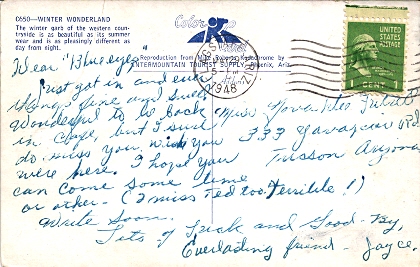 C650—WINTER WONDERLAND
The winter garb of the western coun-
tryside is as beautiful as its summer
wear and is as pleasingly different as
day from night.
Color
Reproduction from Mike Roberts Kodachrome by
INTERMOUNTAIN TOURIST SUPPLY, Phoenix, Ariz.
1948
UNITED STATES POSTAGE
1 CENT 1
Dear "Blue eyes"
Just got in and every
thing's fine and sure
wonderful to be back
in Cage, but I sure
do miss you. wish you
were here. I hope you
can come some time
or other - (I miss Ted too. Terrible!)
Write soon.
Lots of Luck and Good-By,
Everlasting friend - Joyce.
Miss
333 Yavapai Rd
Tucson Arizona